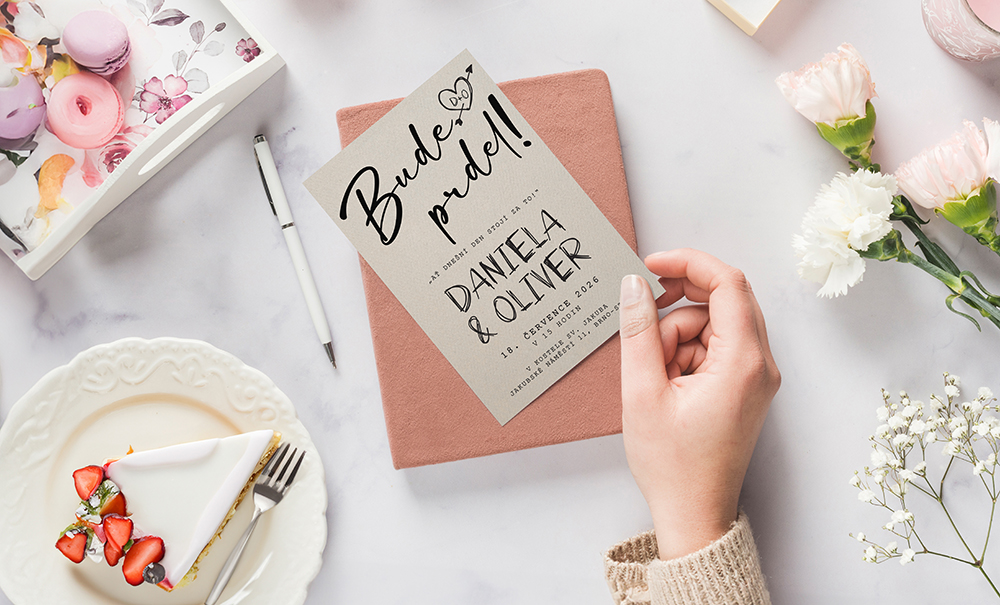 D+O
Bude
prdel!
„AŤ DNEŠNÍ DEN STOJÍ ZA TO!"
DANIELA
& OLIVER
18. ČERVENCE 2026
V 15 HODIN
V KOSTELE SV. JAKUBA
JAKUBSKÉ NÁMĚSTÍ 11,